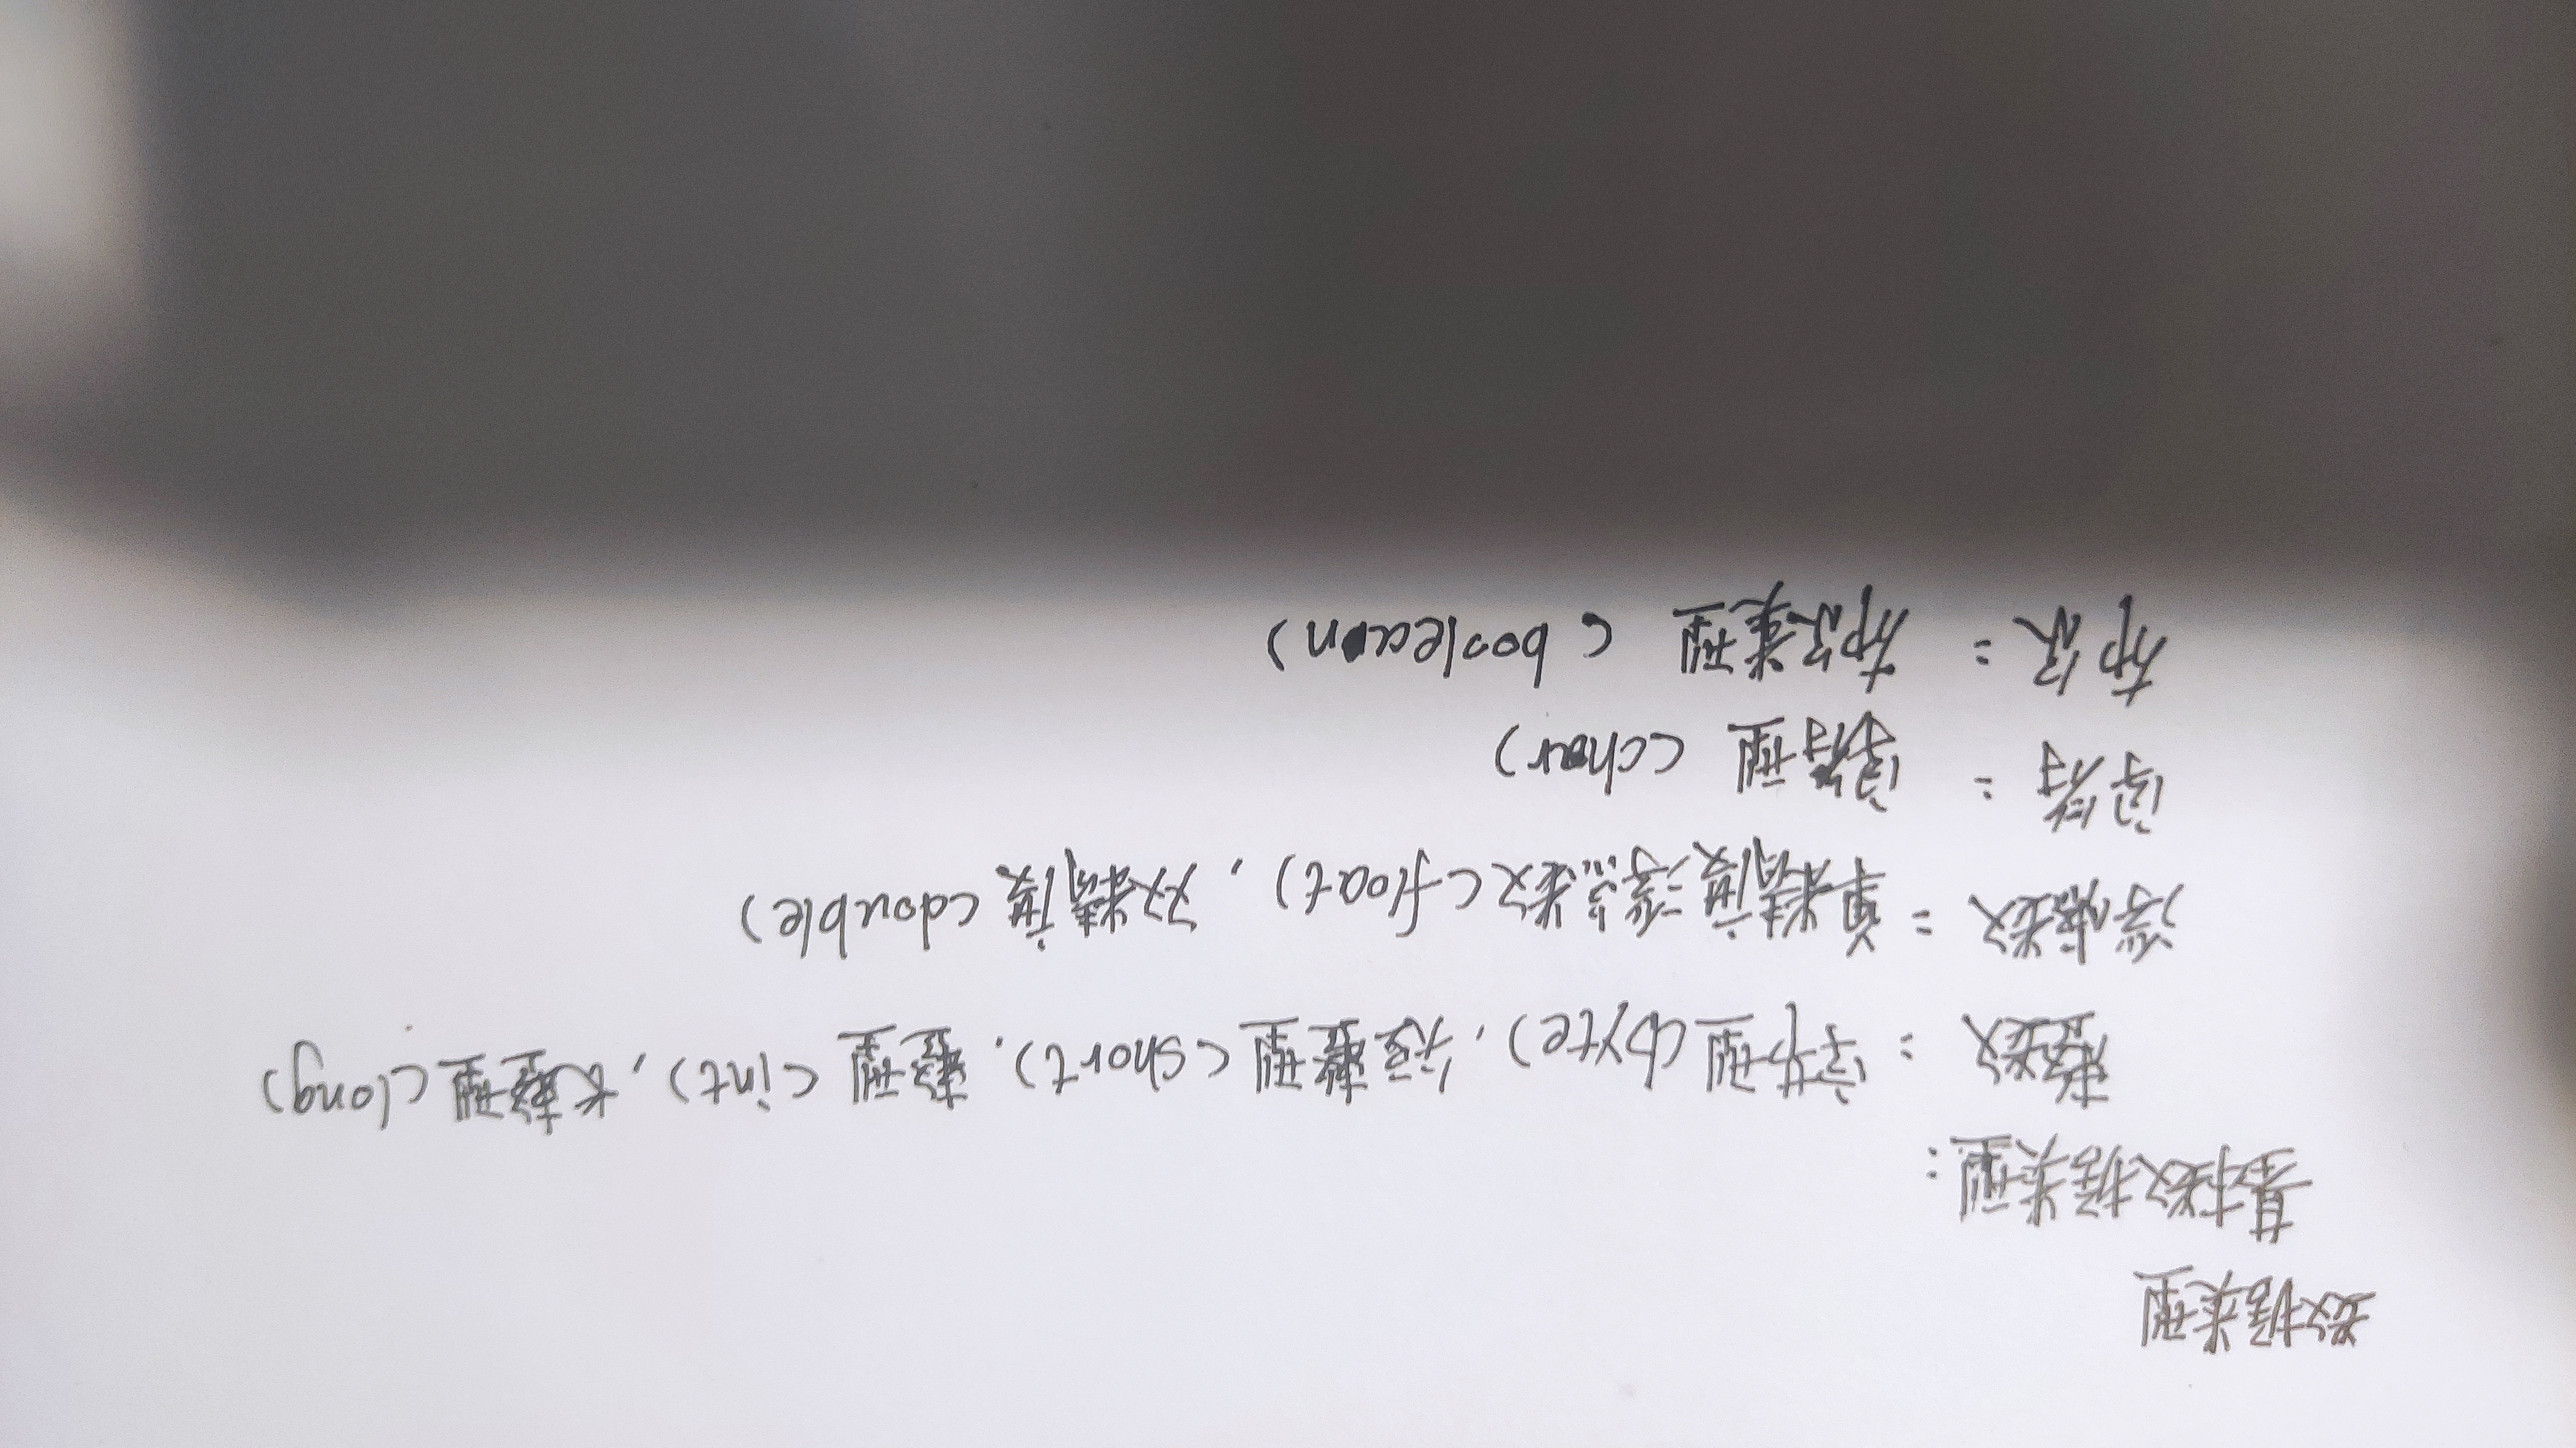 数据类型
基本数据类型:
整数 = 字节型 (byte), 短整型 (short), 整型 (int), 长整型 (long)
浮点数 = 单精度浮点数 (float), 双精度 (double)
字符 = 字符型 (char)
布尔 = 布尔类型 (boolean)